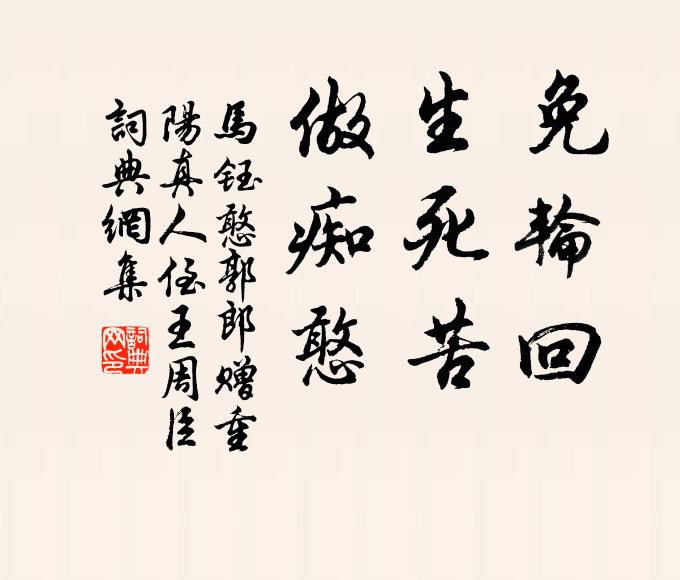 免輪回
生死苦
做痴憨
馬鈺憨郭郎贈重
陽真人侄王周臣
詞典網集
詞典
网印